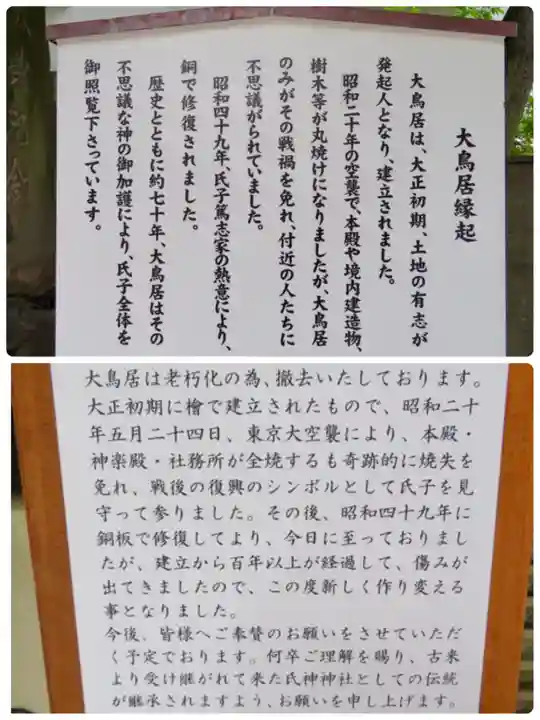 大鳥居縁起
大鳥居は、大正初期、土地の有志が
発起人となり、建立されました。
昭和二十年の空襲で、本殿や境内建造物、
樹木等が丸焼けになりましたが、大鳥居
のみがその戦禍を免れ、付近の人たちに
不思議がられていました。
昭和四十九年、氏子篤志家の熱意により、
銅で修復されました。
歴史とともに約七十年、大鳥居はその
不思議な神の御加護により、氏子全体を
御照覧下さっています。
大鳥居は老朽化の為、撤去いたしております。
大正初期に檜で建立されたもので、昭和二十
年五月二十四日、東京大空襲により、本殿・
神楽殿・社務所が全焼するも奇跡的に焼失を
免れ、戦後の復興のシンボルとして氏子を見
守って参りました。その後、昭和四十九年に
銅板で修復してより、今日に至っておりまし
たが、建立から百年以上が経過して、傷みが
出てきましたので、この度新しく作り変える
事となりました。
今後、皆様へご奉賛のお願いをさせていただ
く予定でおります。何卒ご理解を賜り、古来
より受け継がれて来た氏神神社としての伝統
が継承されますよう、お願いを申し上げます。